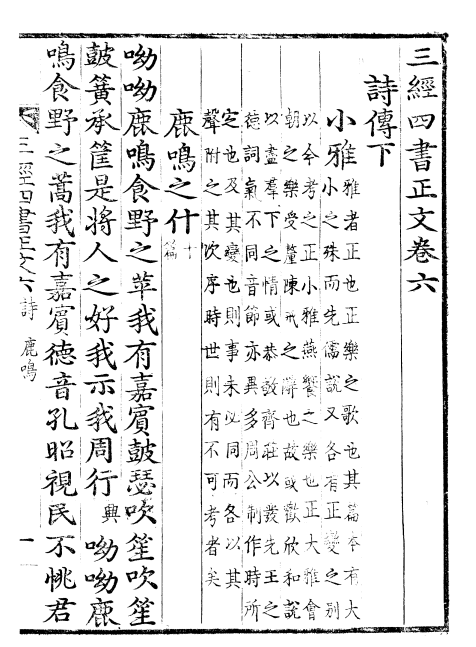 三經四書正文卷六
詩傳下
小雅 雅者正也正樂之歌也其篇本有大
小之殊而先儒說又各有正變之别
以今考之正小雅燕饗之樂也正大雅會
朝之樂受釐陳戒之辭也故或歡欣和說
以盡羣下之情或恭敬齊莊以發先王之
德詞氣不同音節亦異多周公制作時所
定也及其變也則事未必同而各以其
聲附之其次序時世則有不可考者矣
鹿鳴之什 十篇
呦呦鹿鳴食野之苹我有嘉賓鼓瑟吹笙吹笙
鼓簧承筐是將人之好我示我周行 興 呦呦鹿
鳴食野之蒿我有嘉賓德音孔昭視民不恌君
三經四書正文六 詩 鹿鳴 一